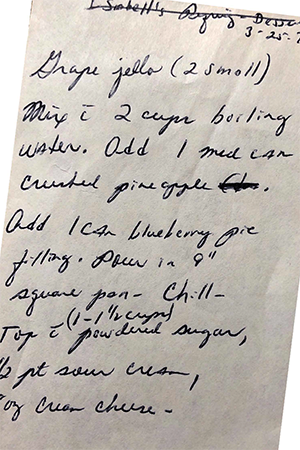 Isabell's Dessert
3-25-7
Grape jello (2 small)
Mix c̄ 2 cups boiling
water. Add 1 med can
crushed pineapple.
Add 1 can blueberry pie
filling. Pour in 9"
square pan - Chill -
(1-1½ cups)
Top c̄ powdered sugar,
½ pt sour cream,
oz cream cheese -